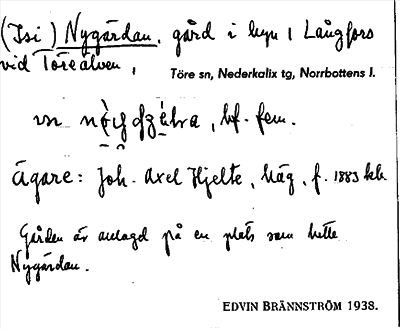 (Isi) Nygårdan, gård i byn i Långfors
vid Töreälven,
Töre sn, Nederkalix tg, Norrbottens l.
bf. fem.
ägare: Joh. Axel Hjelte, häg, f. 1883 
Gården är anlagd på en plats som hette
Nygårdan.
EDVIN BRÄNNSTRÖM 1938.